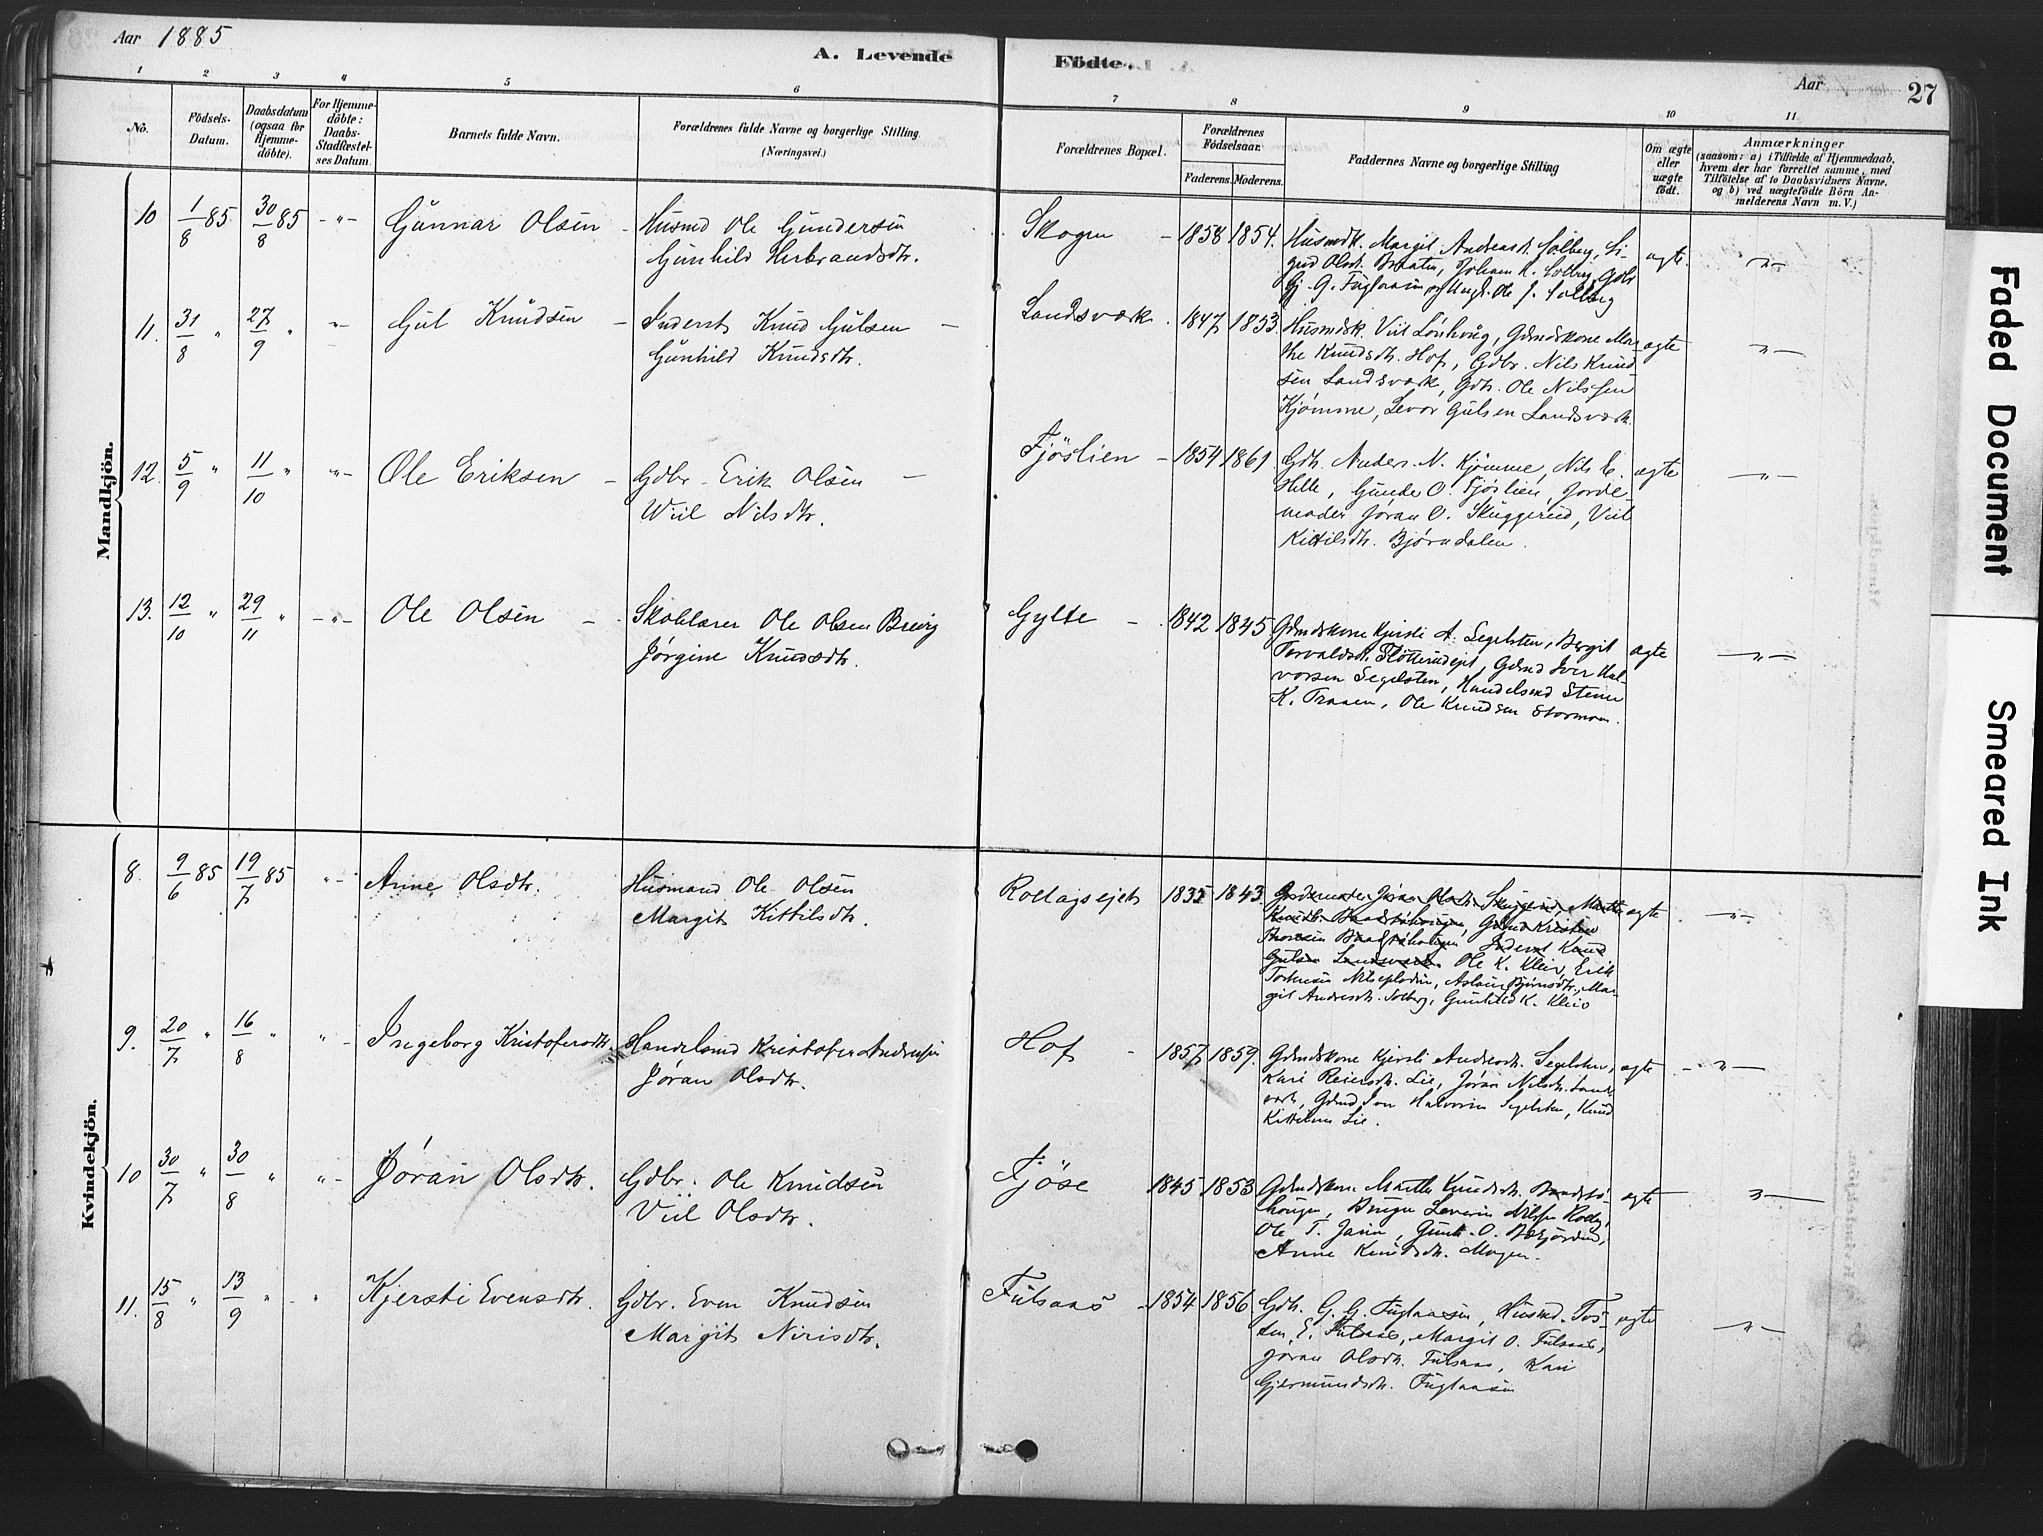 Aar 1885
A. Levende Födte.
Aar 27
1 2 3 4 5 6 7 8 9 10 11
No.
Födsels-Datum.
Daabsdatum (ogsaa for Hjemme-döbte).
For Hjemme-döbte: Daabs-Stadfæstel-ses Datum.
Barnets fulde Navn.
Forældrenes fulde Navne og borgerlige Stilling.
(Næringsvei.)
Forældrenes Bopæl.
Forældrenes Födselsaar.
Faderens. Moderens.
Faddernes Navne og borgerlige Stilling
Om ægte eller uægte født.
Anmærkninger
(saasom: a) i Tilfælde af Hjemmedaab,
hvem der har forrettet samme, med
Tilföielse af to Daabsvidners Navne.
og b) ved uægtefödte Börn An-
melderens Navn m. V.)
Mandkjön.
10 1/8 85 30/8 85 -"- Gunnar Olsen - Husmd Ole Gundersen
Gunhild Herbrandsdtr.
Skogen - 1858 1854. Husmdk. Margit Andreasdt. Solberg, Si-
grid Olsdt. Braaten, Johan K. Solberg, Gdbr
G. G. Fuglaasen og Ungk. Ole J. Solberg
ægte. -"-
11. 31/8 " 27/9 " "- Gul Knudsen - Inderst Knud Gulsen -
Gunhild Knudsdtr.
Landsværk. 1847 1853. Husmdsk. Viil Lønhoug, Gdmdskone Mar-
the Knudsdtr. Hof, Gdbr. Nils Knud
sen Landsværk, Gdb. Ole Nilssen
Kjømme, Levor Gulsen Landsværk.
ægte -"-
12. 5/9 " 11/10 " "- Ole Eriksen - Gdbr. Erik Olsen -
Wiil Nilsdtr.
Fjöslien - 1854 1861 Gdb. Anders N. Kjømme, Nils E.
Helle, Gunder O. Fjöslien, Jorde
moder Jøran O. Skuggerud, Viil
Kittilsdtr. Bjørndalen.
ægte -"-
13. 12/10 " 29/11 " -"- Ole Olsen - Skolelærer Ole Olsen Brevig
Jørgine Knudsdtr.
Gylte - 1842 1845 Gdmdskone Kjersti A. Segelsten, Bergit
Torvaldsdt. Fløtterudejet, Gdmd Iver Hal-
vorsen Segelsten, Handelsmd Steener
K. Traaen, Ole Knudsen Stormoen.
ægte -"-
Kvindekjön.
8. 9/6 85 19/7 85 "- Anne Olsdtr. Husmand Ole Olsen
Margit Kittilsdtr.
Rollagsejet 1835 1843. Jordemoder Jøran Olsdt. Skuggerud, Marthe
Knudsdt. Baadstøhougen, Gdmd Kristen
Thoresen Baadstøhougen Inderst Knud
Gulsen Landsværk. Ole K. Kleiv, Erik
Torkelsen, Aslaug Bjørnsdtr, Mar-
git Andresdt. Solberg, Gunhild K. Kleiv
ægte -"-
9. 20/7 " 16/8 " "- Ingeborg Kristofersdtr. Handelsmd Kristofer Andersen
Jøran Olsdtr.
Hof - 1857 1859. Gdmdskone Kjersti Andersdt. Segelsten,
Kari Reiersdt. Lie, Jøran Nilsdt. Lands
værk, Gdmd Iver Halvorsen Segelsten, Knud
Kittilsen Lie.
ægte -"-
10 30/7 " 30/8 " "- Jøran Olsdtr. Gdbr. Ole Knudsen
Viil Olsdtr.
Fjöse 1845 1853 Gdmdskone Marthe Knudsdt. Baadstö-
hougen, Severin Nilssen
Ole T. Gunh. O.
Anne Knudsdt. Mogen.
ægte -"-
11. 15/8 " 13/9 " -" Kjersti Evensdtr. Gdbr. Even Knudsen
Margit Nirisdtr.
Fulsaas - 1854 1856 Gdb. G. G. Fuglaasen, Husmd. Tos-
ten E. Fulsaas, Margit O. Fulsaas,
Jøran Olsdt. Fulsaas, Kari
Gjermundsdt. Fuglaasen
ægte -"-
Faded Document
Smeared Ink